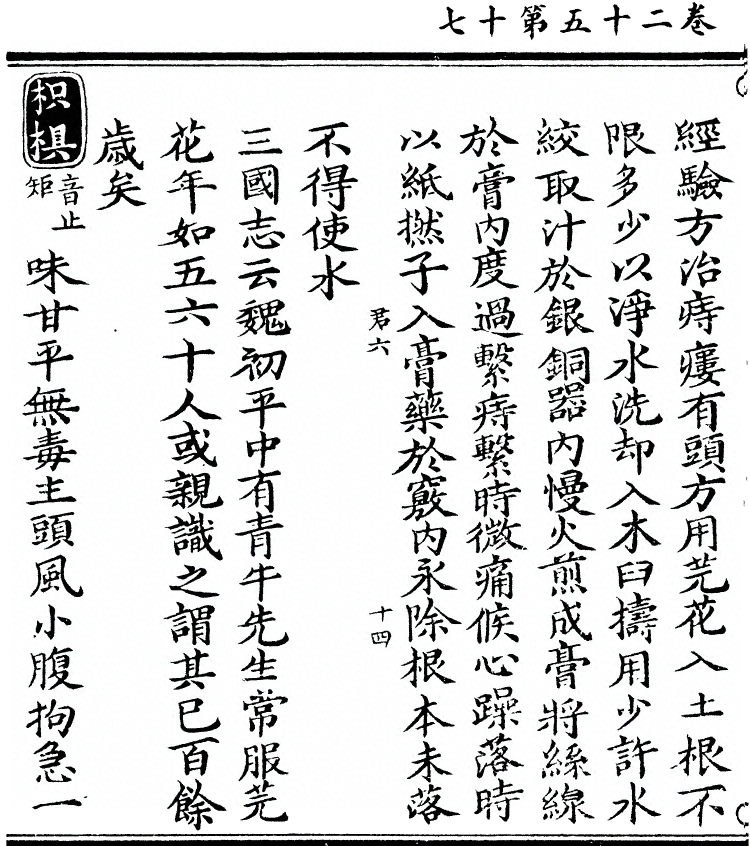 卷二十五第十七
經驗方治痔瘻有頭方用芫花入土根不
限多少以淨水洗却入木臼擣用少許水
絞取汁於銀銅器内慢火煎成膏將絲線
於膏内度過繫痔繫時微痛候心躁落時
以紙撚子入膏藥於竅内永除根本未落
君六 十四
不得使水
三國志云魏初平中有青牛先生常服芫
花年如五六十人或親識之謂其巳百餘
歳矣
枳椇 音止矩 味甘平無毒主頭風小腹拘急一